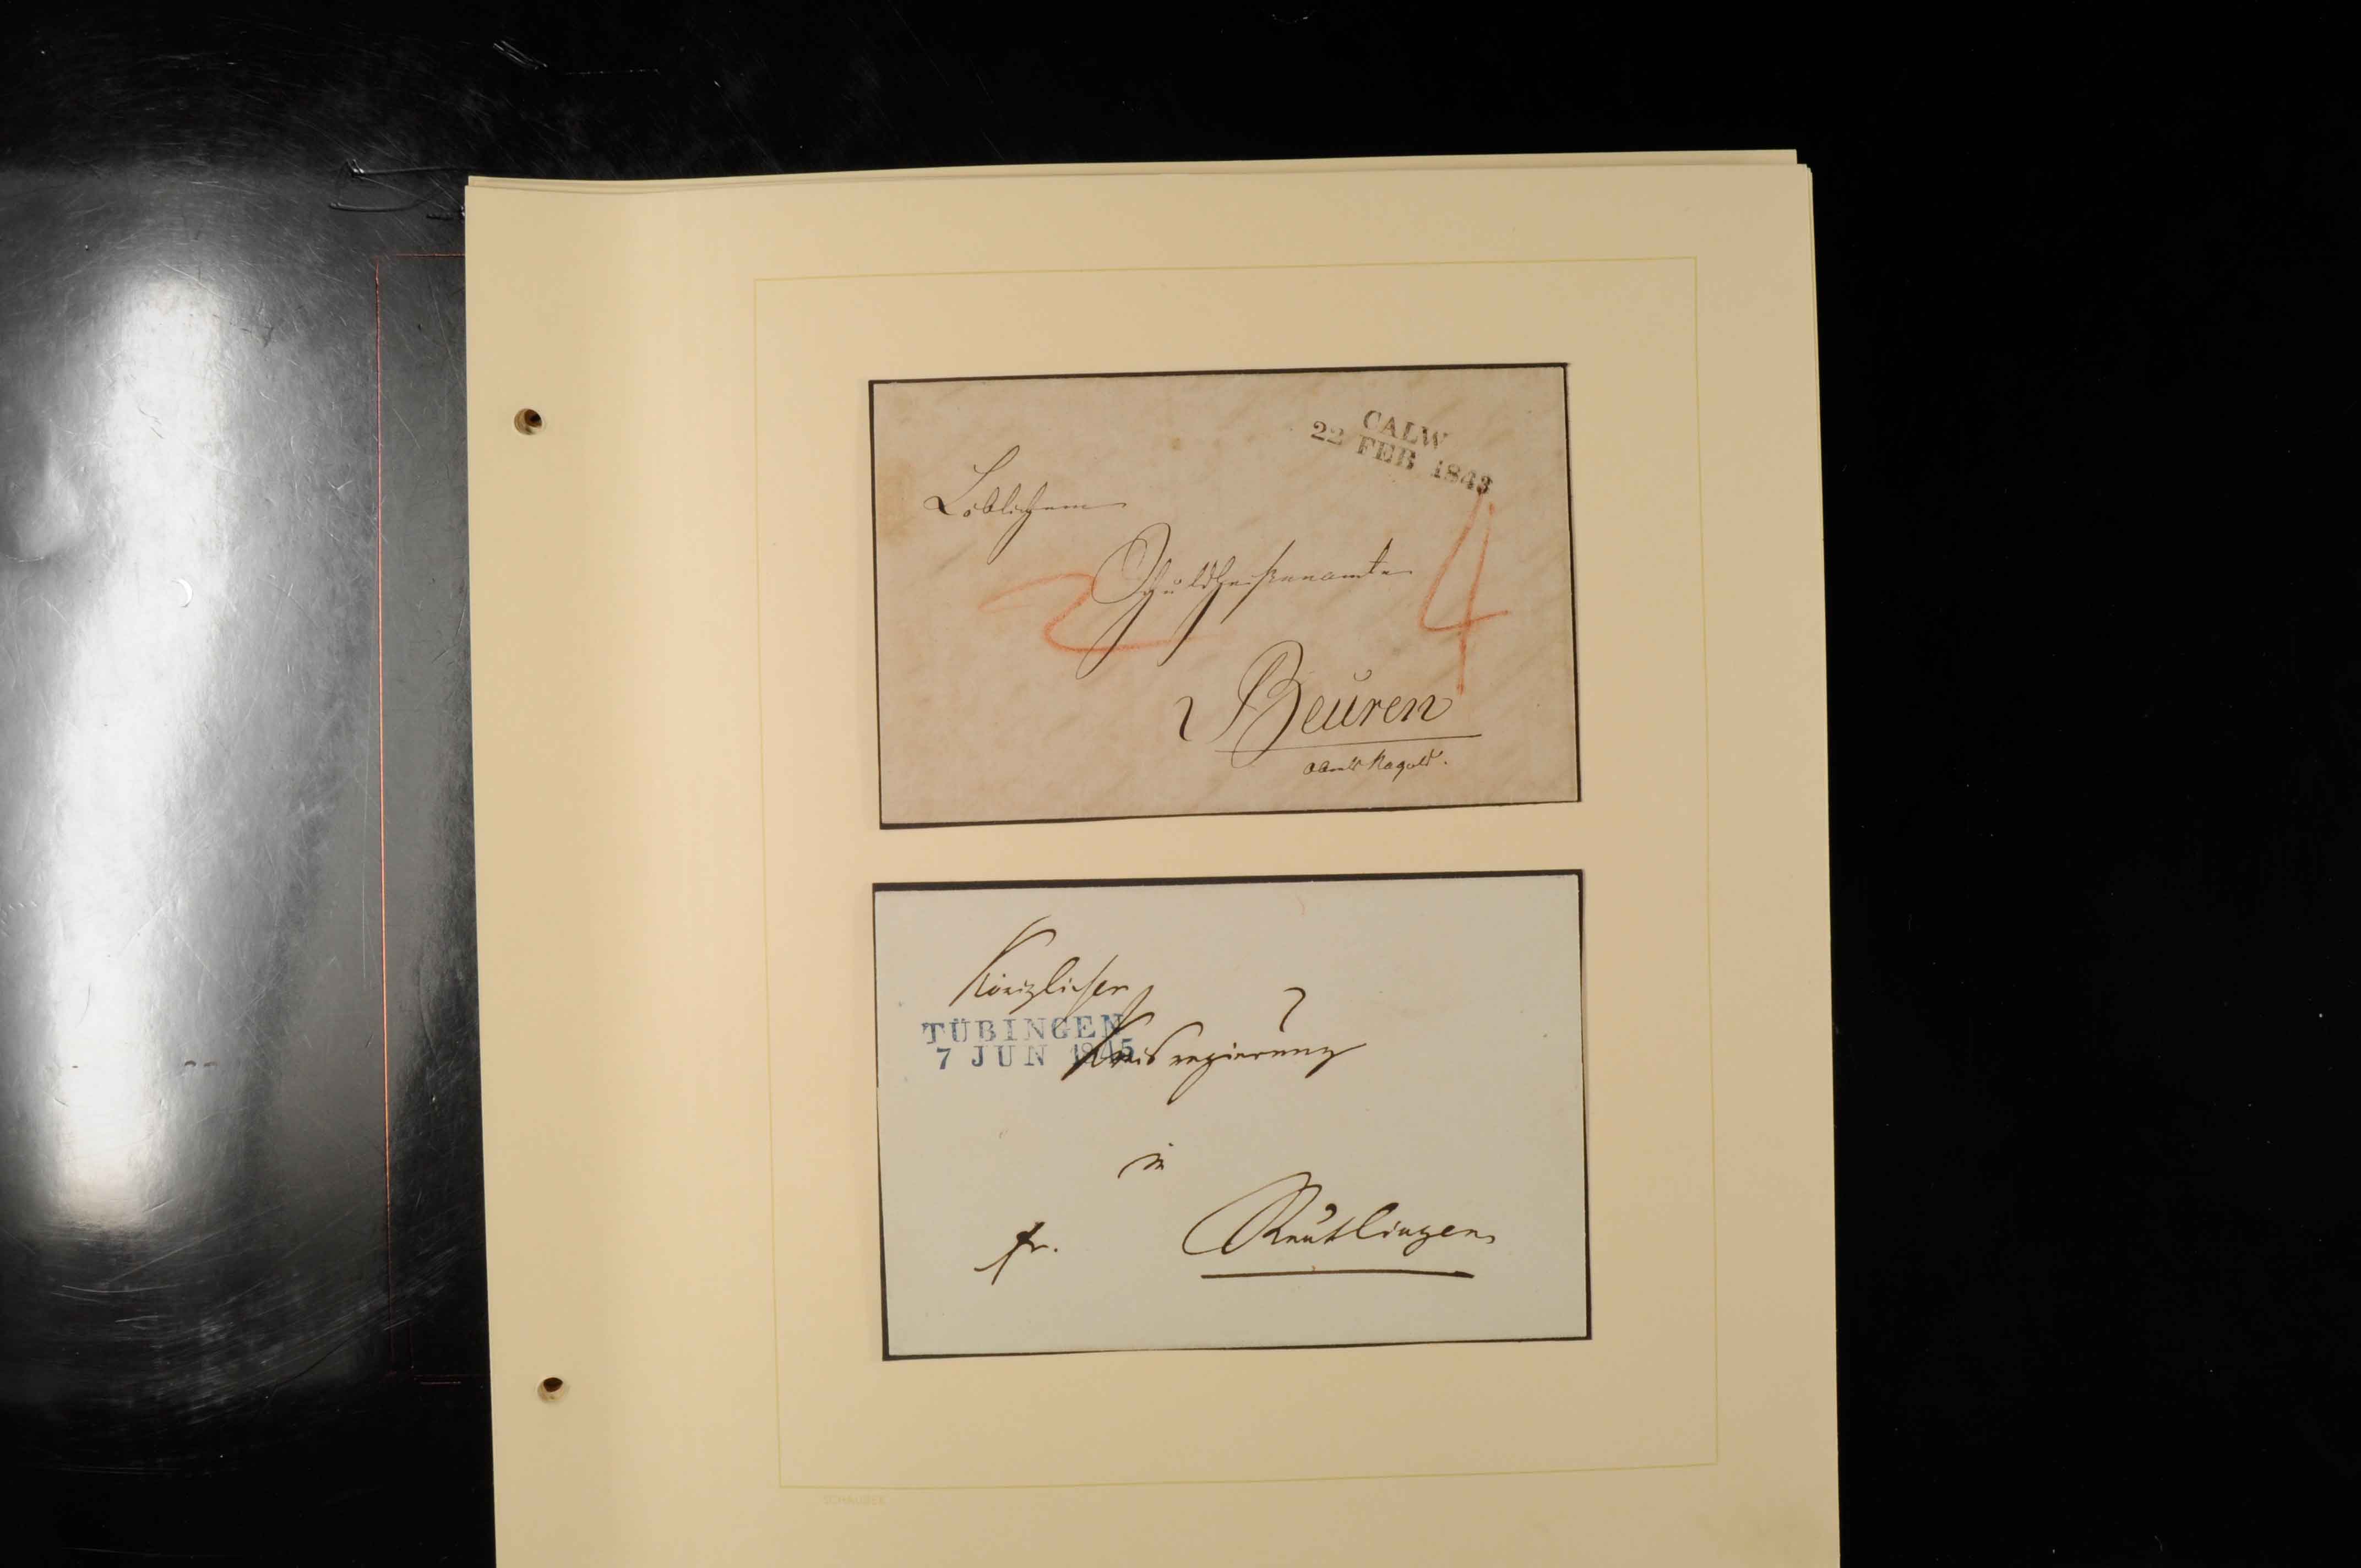 CALW
22 FEB 1843
Löblichem
Schuldheißenamte
2
4
Beuren
Oberamts Nagold.
Königlicher
TÜBINGEN
7 JUN 1845
Kreisregierung
in
fr.
Reutlingen
SCHAUBEK